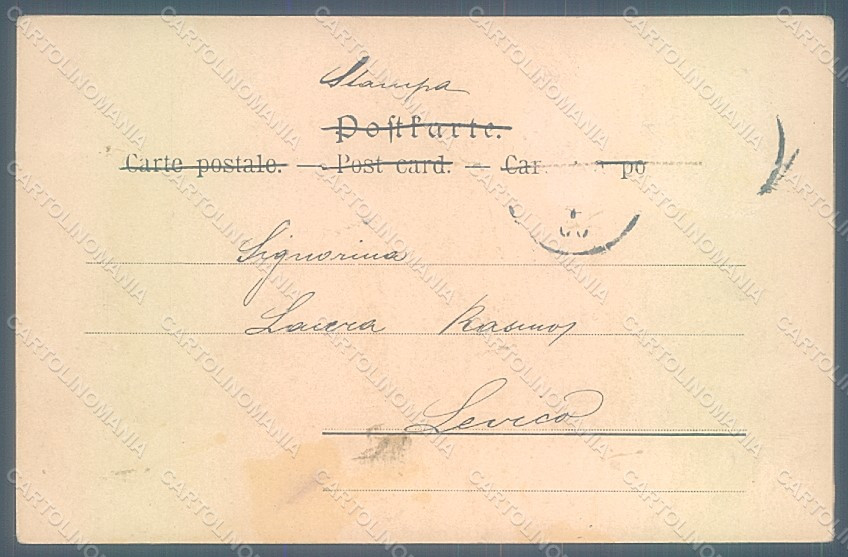 Stampa
Postkarte.
Carte postale. — Post card. — Car po
Signorina
Laura
Levico
CARTOLINOMANIA